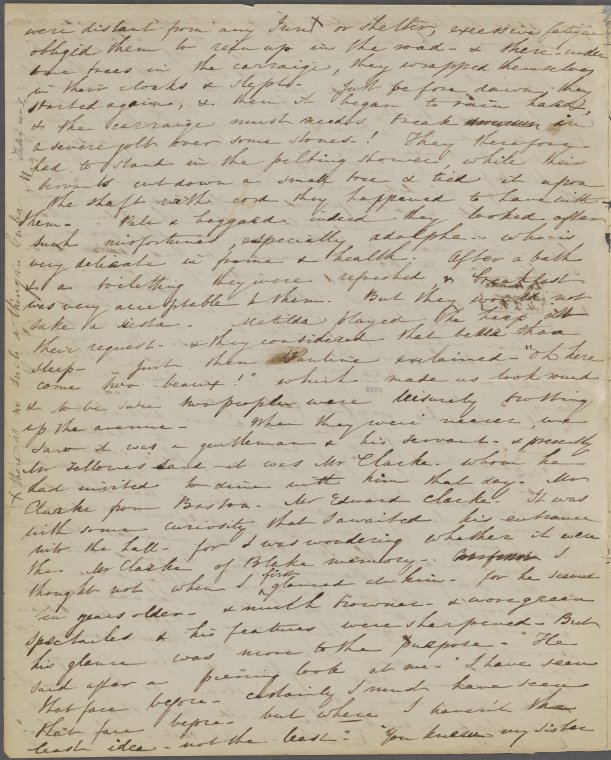 were distant from any Inn x or shelter, excessive fatigue
obliged them to rein up in the road - & there under
some trees in the carraige, they wrapped themselves
in their cloaks & slept - Just before dawn, they
started again, & then it began to rain hard,
& the carraige must needs break in
a severe jolt over some stones -! They therefore
had to stand in the pelting shower, while their
servants cut down a small tree & tied it upon
the shaft with cord they happened to have with
them - Pale & haggard indeed they looked after
such misfortunes, especially Adolphe - who is
very delicate in frame & health. After a bath
& a toiletting they were refreshed, & breakfast
was very acceptable to them. But they would not
take a siesta - Matilda played the harp at
their request - & they considered that better than
sleep - Just then Pauline exclaimed - "Oh here
come two beaux!" which made us look round
& to be sure two people were leisurely trotting
up the avenue - When they were nearer we
saw it was a gentleman & his servant - & presently
Mr Fellowes said - it was Mr Clarke - whom he
had invited to dine with him that day - Mr
Clarke from Boston - Mr Edward Clarke - It was
with some curiosity that I awaited his entrance
into the hall - for I was wondering whether it were
the Mr Clarke of Blake memory - I
thought not when I first glanced at him - for he seemed
ten years older - & much browner - & wore green
spectacles & his features were sharpened - But
his glance was more to the purpose - He
said after a piercing look at me - "I have seen
that face before - certainly I must have seen
that face before - but where I haven't the
least idea - not the least" - "You knew my sister
x there is no such a thing in Cuba